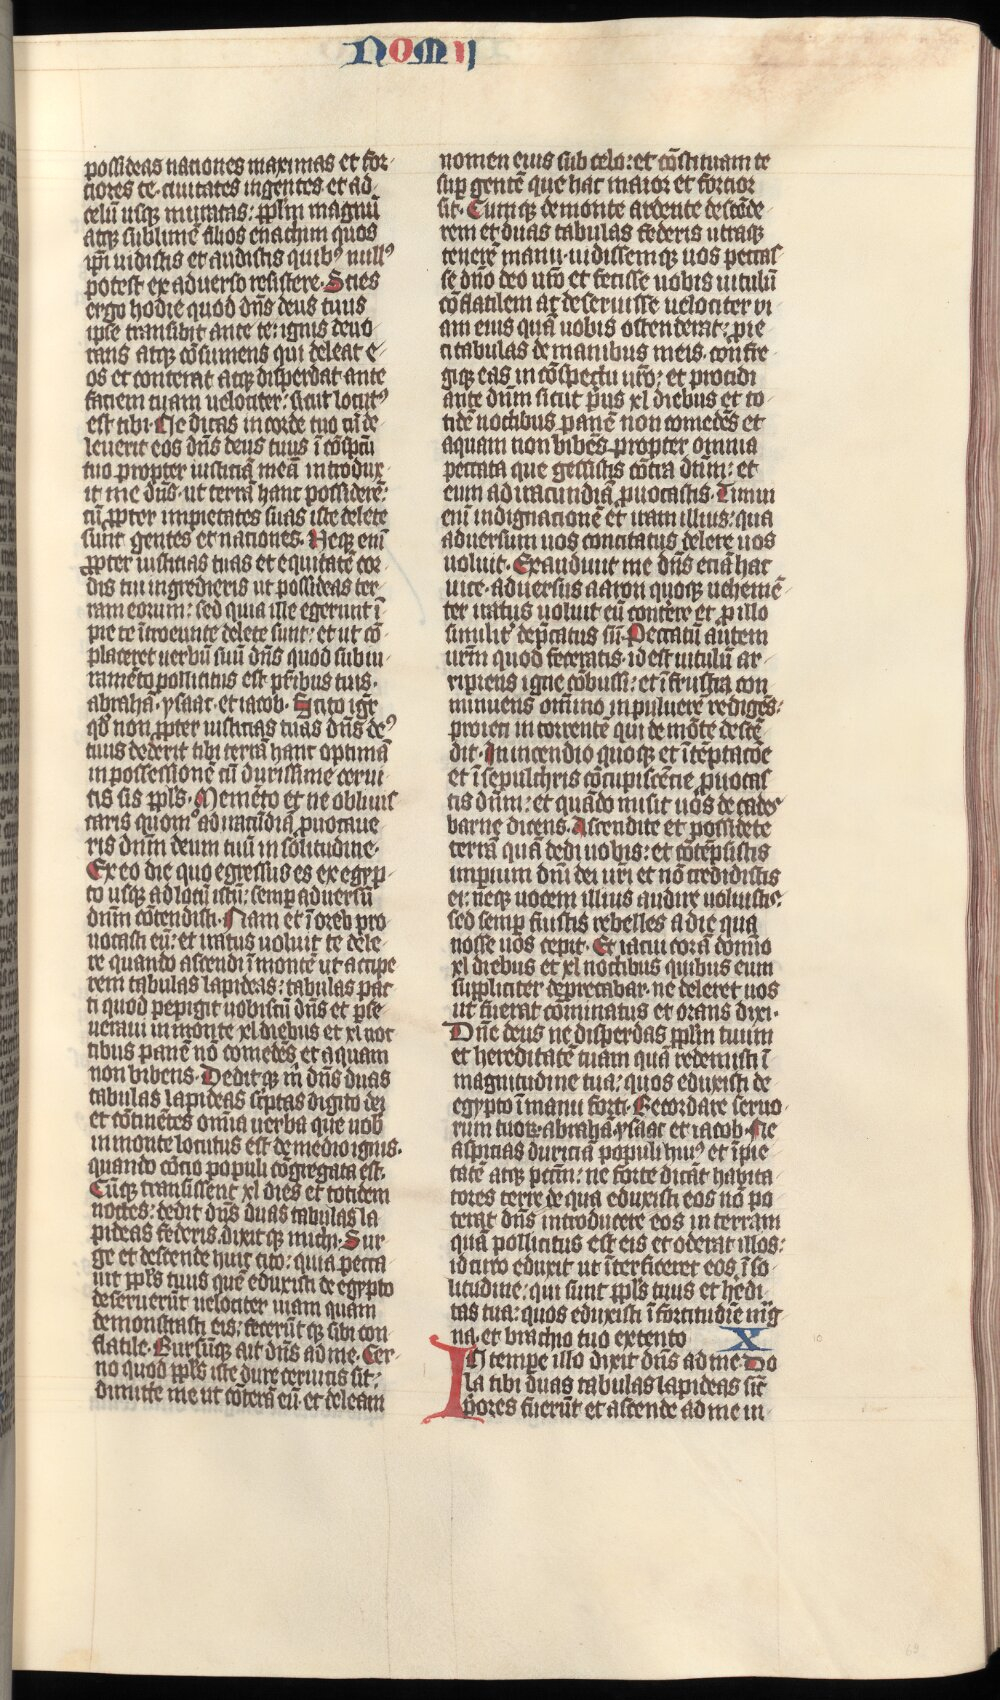 NOMII
possideas nationes maximas et for-
tiores te. civitates ingentes et ad
celū usq; muratas: pplm̄ magnū
atq; sublimē filios enachim quos
ip̄i vidistis et audistis quibꝰ nullꝰ
potest ex adverso resistere. Scies
ergo hodie quod dn̄s deus tuus
ipse transibit ante te: ignis devo-
rans atq; cōsumens qui deleat e-
os et conterat atq; disperdat ante
faciem tuam velociter: sicut locutꝰ
est tibi. Ne dicas in corde tuo cū de-
leverit eos dn̄s deus tuus ī cōspcū
tuo propter iusticiā meā introdux-
it me dn̄s. ut terrā hanc possiderē:
cū ꝓpter impietates suas iste delete
sunt gentes et nationes. Neq; enī
ꝓpter iusticias tuas et equitatē cor-
dis tui ingredieris ut possideas ter-
ram eorum: sed quia ille egerunt ī
pie te ītroeunte delete sunt: et ut cō-
pleteret verbū suū dn̄s quod sub iu-
ramēto pollicitus est pr̄ibus tuis.
abrahā. ysaac. et iacob. Scito igr̄
qd̄ non ꝓpter iusticias tuas dn̄s deꝰ
tuus dederit tibi terrā hanc optimā
in possessionē cū durissime cervi-
cis sis ppl̄s. Memēto et ne obliuis
caris quomō ad iracūdiā ꝓvocave
ris dn̄m deum tuū in solitudine.
Ex eo die quo egressus es ex egyp-
to usq; ad locū istū: semp̄ adversū
dn̄m cōtendisti. Nam et ī oreb pro
vocasti eū: et iratus voluit te dele-
re quando ascendi ī montē ut accipe
rem tabulas lapideas: tabulas pac
ti quod pepigit vobiscū dn̄s et p̄se
veravi in monte xl diebus et xl noc
tibus panē nō comedēs et aquam
non bibens. Deditq; m̄ dn̄s duas
tabulas lapideas sc̄ptas digito dei
et cōtinētes omīa verba que vob̄
in monte locutus est de medio ignis.
quando cōcio populi cōgregata est.
Cūq; transissent xl dies et totidem
noctes: dedit dn̄s duas tabulas la
pideas federis. dixitq; michi. Sur-
ge et descende hinc cito: quia pecca
vit ppl̄s tuus quē eduxisti de egypto
deseruerūt velociter viam quam
demonstrasti eis: fecerūtq; sibi con
flatile. Rursūq; ait dn̄s ad me. Cer-
no quod ppl̄s iste dure cervicis sit:
dimitte me ut cōterā eū. et deleam
nomen eius sub celo: et cōstituam te
sup̄ gentē que hac maior et forcior
sit. Cumq; de monte ardente descēde-
rem et duas tabulas federis utraq;
tenerē manu. vidissemq; vos peccas-
se dn̄o deo vr̄o et fecisse vobis vitulū
cōflatilem ac deseruisse velociter vi
am eius quā vobis ostenderat: ꝓie
ci tabulas de manibus meis. confre-
giq; eas in cōspectu vr̄o: et procidi
ante dn̄m sicut prius xl diebus et to-
tidē noctibus panē non comedēs et
aquam non bibēs propter omnia
peccata que gessistis cōtra dn̄m: et
eum ad iracundiā ꝓvocastis. Timui
enī indignacionē et iram illius: qua
adversum vos concitatus delere vos
voluit. Exaudivit me dn̄s eciā hac
vice. adversus aaron quoq; vehemē-
ter iratus voluit eū conterere et ꝓ illo
similit᷑ dep̄catus sū. Peccatū autem
vrm̄ quod feceratis. id est vitulū ar-
ripiens igne cōbussi: et ī frusta con
minuens omīno in pulverē redigēs.
proieci in torrentē qui de mōte descē
dit. In incendio quoq; et ī tēptacōe
et ī sepulchris cōcupiscēcie ꝓvocas
tis dn̄m: et quādo misit vos de cades
barne dicens. Ascendite et possidete
terrā quā dedi vobis: et cōtēpsistis
imperium dn̄i dei vri et nō credidistis
ei: neq; vocem illius audire voluistis.
sed semp̄ fuistis rebelles a die qua
nosse vos cepit. Et iacui corā domīo
xl diebus et xl noctibus quibus eum
suppliciter deprecabar. ne deleret vos
ut fuerat cōminatus et orans dixi.
Dn̄e deus ne disperdas pplm̄ tuum
et hereditatē tuam quā redemisti ī
magnitudine tua: quos eduxisti de
egypto ī manu forti. Recordare servo-
rum tuoꝝ. abrahā. ysaac et iacob. Ne
aspicias duricia populi huiꝰ et īpie-
tatē atq; pccm̄: ne forte dicāt habita-
tores terre de qua eduxisti eos nō po
terat dn̄s introducere eos in terram
quā pollicitus est eis et oderat illos:
idcirco eduxit ut īterficeret eos ī so-
litudine: qui sunt ppl̄s tuus et hedi-
tas tua: quos eduxisti ī fortitudīe mg̅
na. et brachio tuo extento X 10
In tempe illo dixit dn̄s ad me. Do
la tibi duas tabulas lapideas sic̄
p̄ores fuerūt et ascende ad me in
69